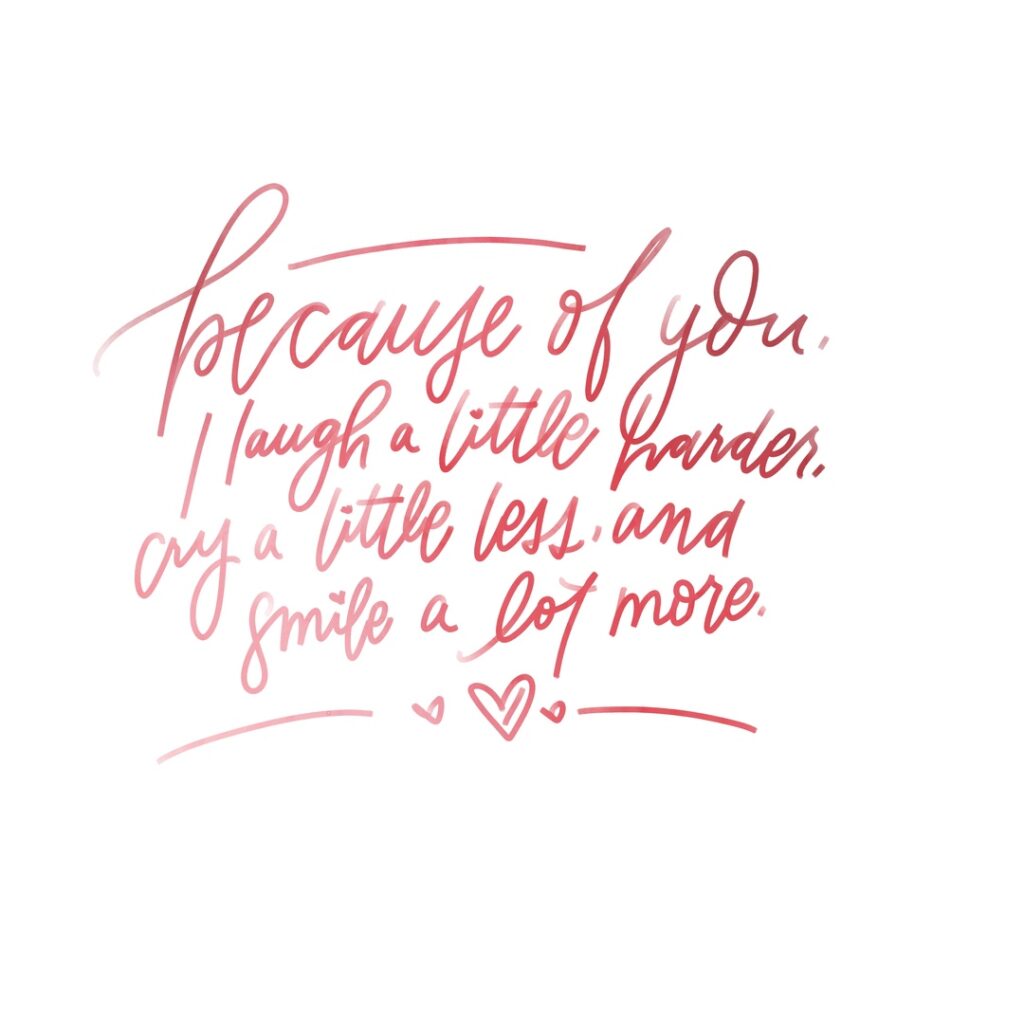 because of you,
I laugh a little harder,
cry a little less, and
smile a lot more.